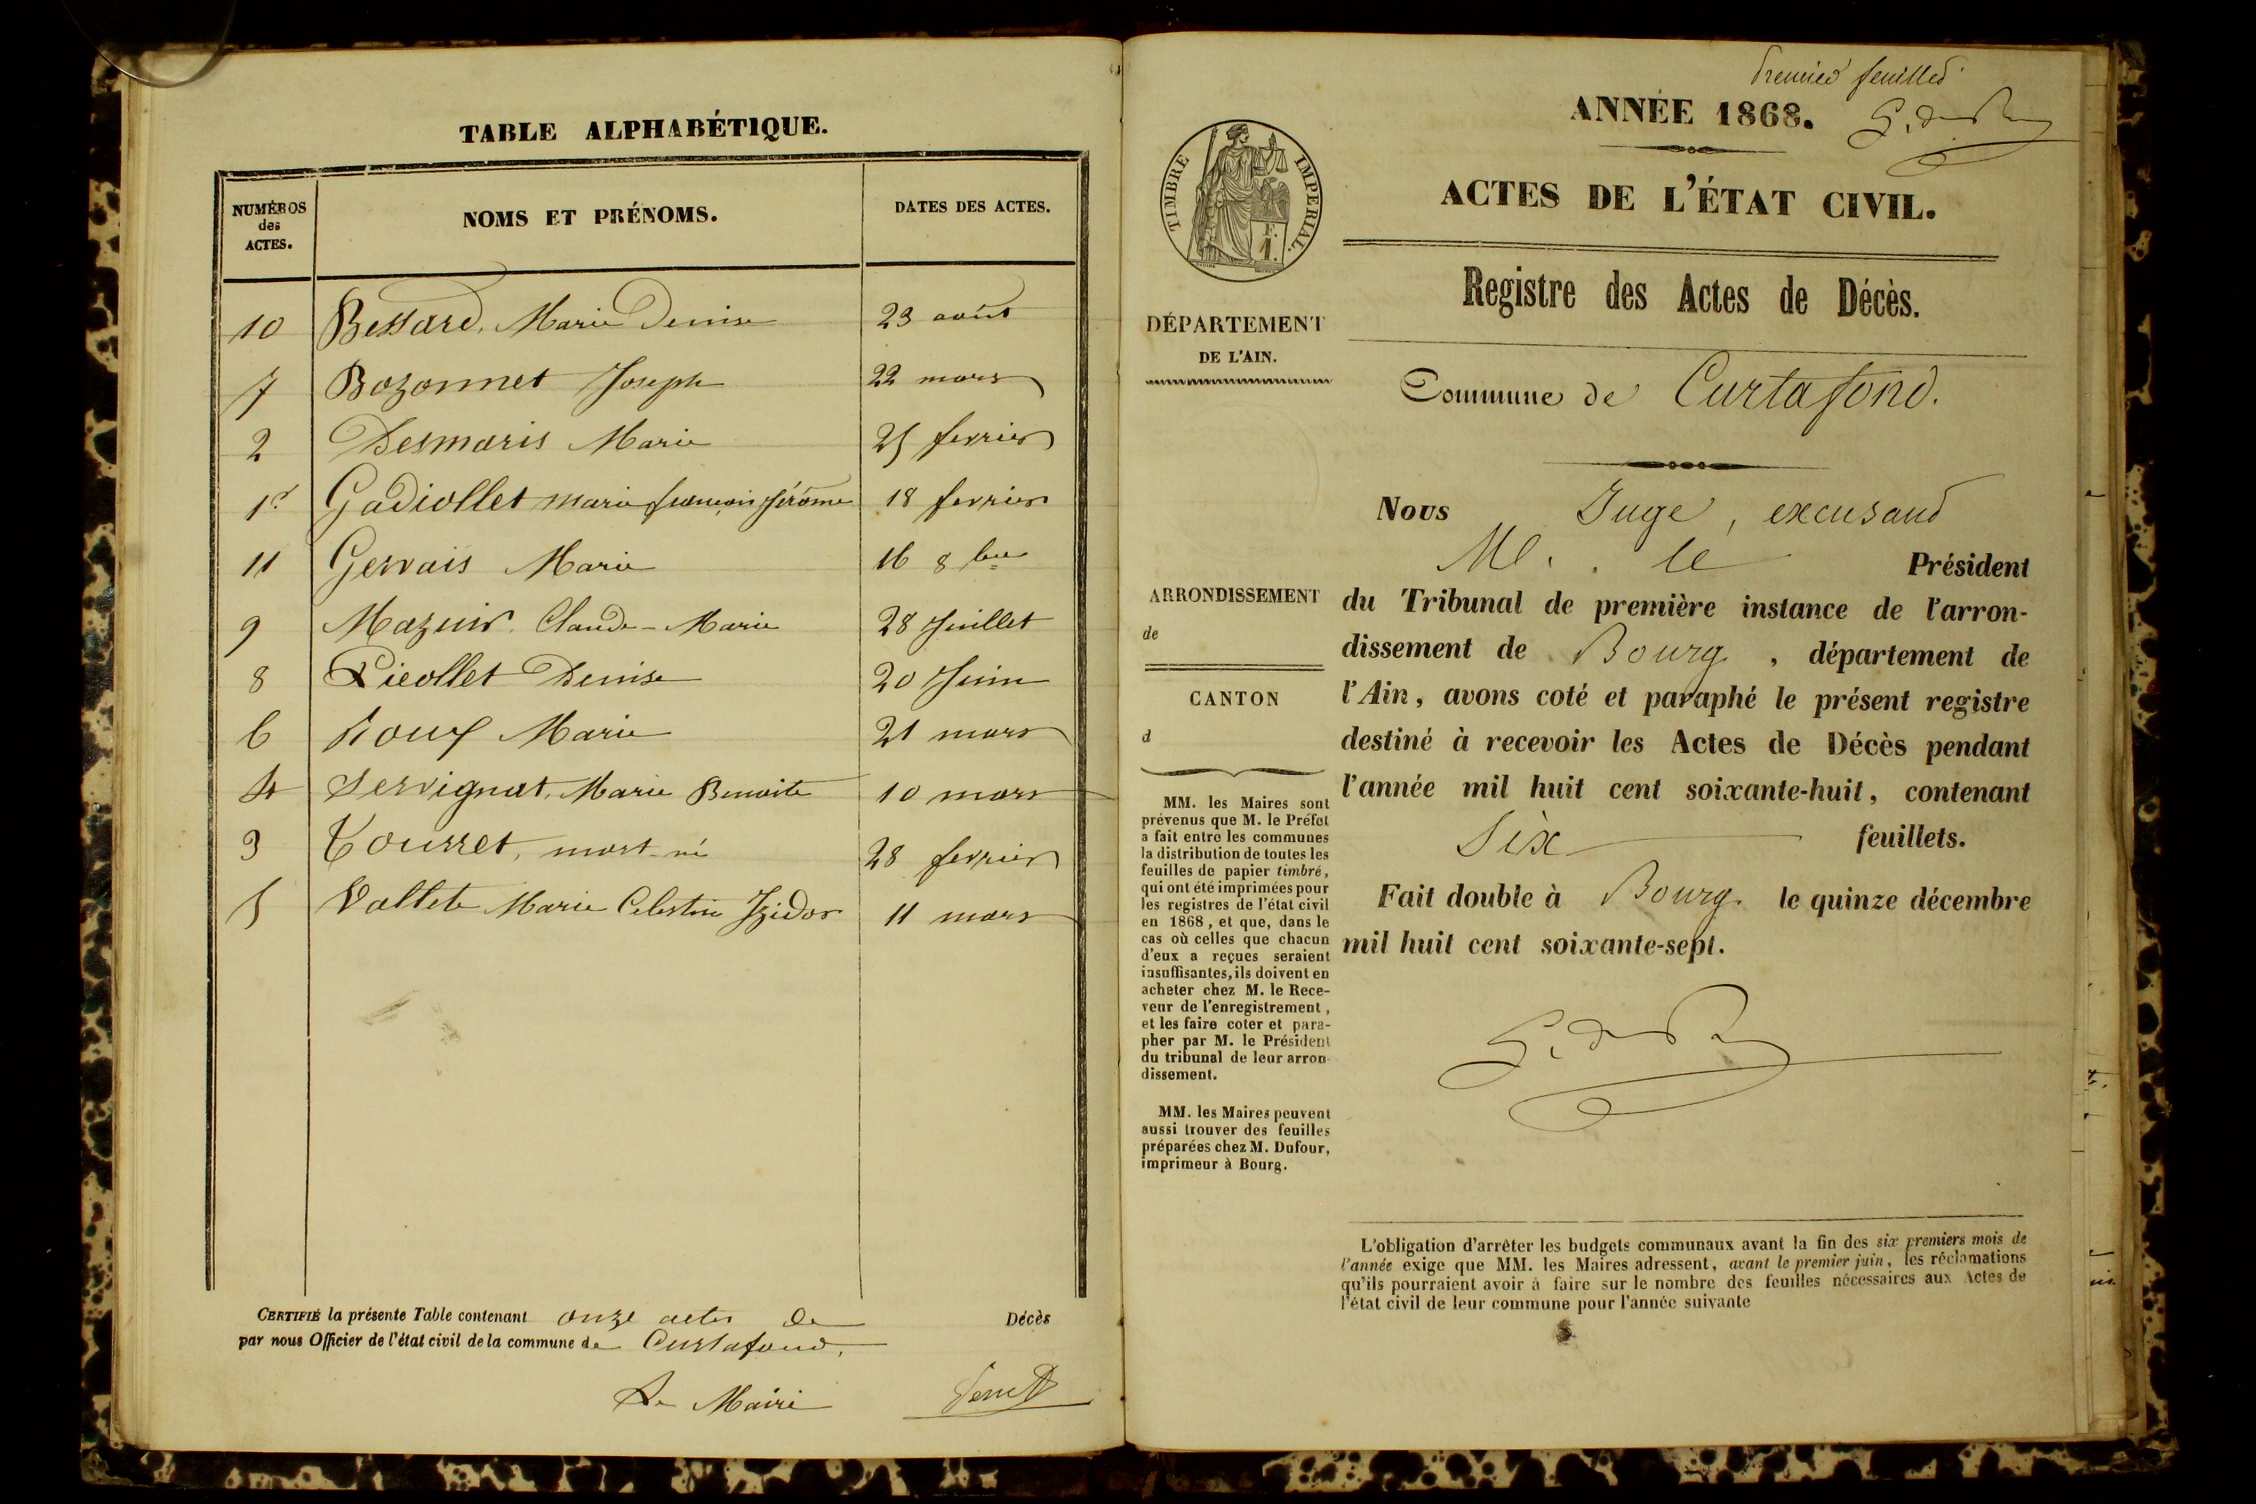 TABLE ALPHABÉTIQUE.
NUMÉROS
des
ACTES.
NOMS ET PRÉNOMS.
DATES DES ACTES.
10 Bessard, Marie Denise 23 août
7 Bozonnet Joseph 22 mars
2 Desmaris Marie 25 fevrier
1er Gadiollet marie françois Jérôme 18 fevrier
11 Gervais Marie 16 8bre
9 Mazuir Claude-Marie 28 Juillet
8 Picollet Denise 20 Juin
6 Roux Marie 21 mars
4 Servignat, Marie Benoite 10 mars
3 Tousset, mort-né 28 fevrier
5 Vallet Marie Celestin Izidor 11 mars
CERTIFIÉ la présente Table contenant onze actes de Décès
par nous Officier de l'état civil de la commune de Curtafond,
Le Maire
Premier feuillet
ANNÉE 1868.
ACTES DE L'ÉTAT CIVIL.
TIMBRE IMPERIAL.
DÉPARTEMENT
DE L'AIN.
ARRONDISSEMENT
de
CANTON
d
MM. les Maires sont
prévenus que M. le Préfet
a fait entre les communes
la distribution de toutes les
feuilles de papier timbré,
qui ont été imprimées pour
les registres de l'état civil
en 1868, et que, dans le
cas où celles que chacun
d'eux a reçues seraient
insuffisantes, ils doivent en
acheter chez M. le Rece-
veur de l'enregistrement,
et les faire coter et para-
pher par M. le Président
du tribunal de leur arron-
dissement.
MM. les Maires peuvent
aussi trouver des feuilles
préparées chez M. Dufour,
imprimeur à Bourg.
Registre des Actes de Décès.
Commune de Curtafond.
Nous Juge, excusand
M. le Président
du Tribunal de première instance de l'arron-
dissement de Bourg, département de
l'Ain, avons coté et paraphé le présent registre
destiné à recevoir les Actes de Décès pendant
l'année mil huit cent soixante-huit, contenant
Six feuillets.
Fait double à Bourg. le quinze décembre
mil huit cent soixante-sept.
L'obligation d'arrêter les budgets communaux avant la fin des six premiers mois de
l'année exige que MM. les Maires adressent, avant le premier juin, les réclamations
qu'ils pourraient avoir à faire sur le nombre des feuilles nécessaires aux Actes de
l'état civil de leur commune pour l'année suivante